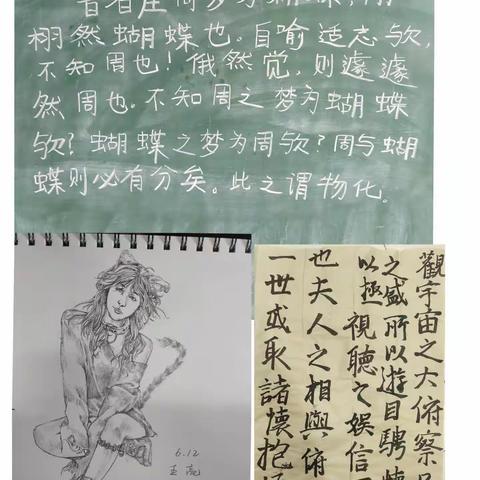 昔者庄周梦为蝴蝶,栩
栩然蝴蝶也。自喻适志欤,
不知周也!俄然觉,则遽遽
然周也。不知周之梦为蝴蝶
欤?蝴蝶之梦为周欤?周与蝴
蝶则必有分矣。此之谓物化。
6.12
觀宇宙之大俯察
之盛所以遊目騁懷
以極視聽之娱信
也夫人之相與俯
一世或取諸懷抱